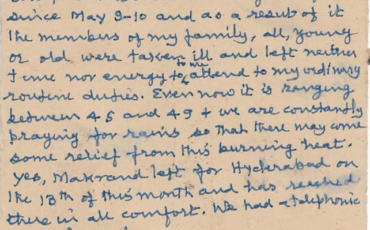 since May 9-10 and as a result of it
the members of my family, all, young
or old were taken ill and left neither
time nor energy to me to attend to my ordinary
routine duties. Even now it is ranging
between 45 and 49 + we are constantly
praying for rains so that there may come
some relief from this burning heat.
Yes, Makrand left for Hyderabad on
the 13th of this month and has reached
there in all comfort. We had a telephonic